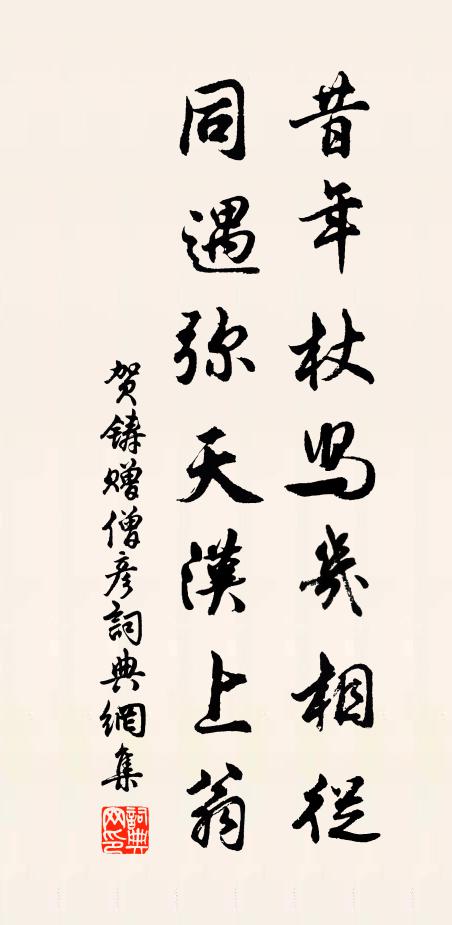 昔年杖舄幾相從
同遇彌天漢上翁
贺鑄贈僧彥詞典網集
詞典網印